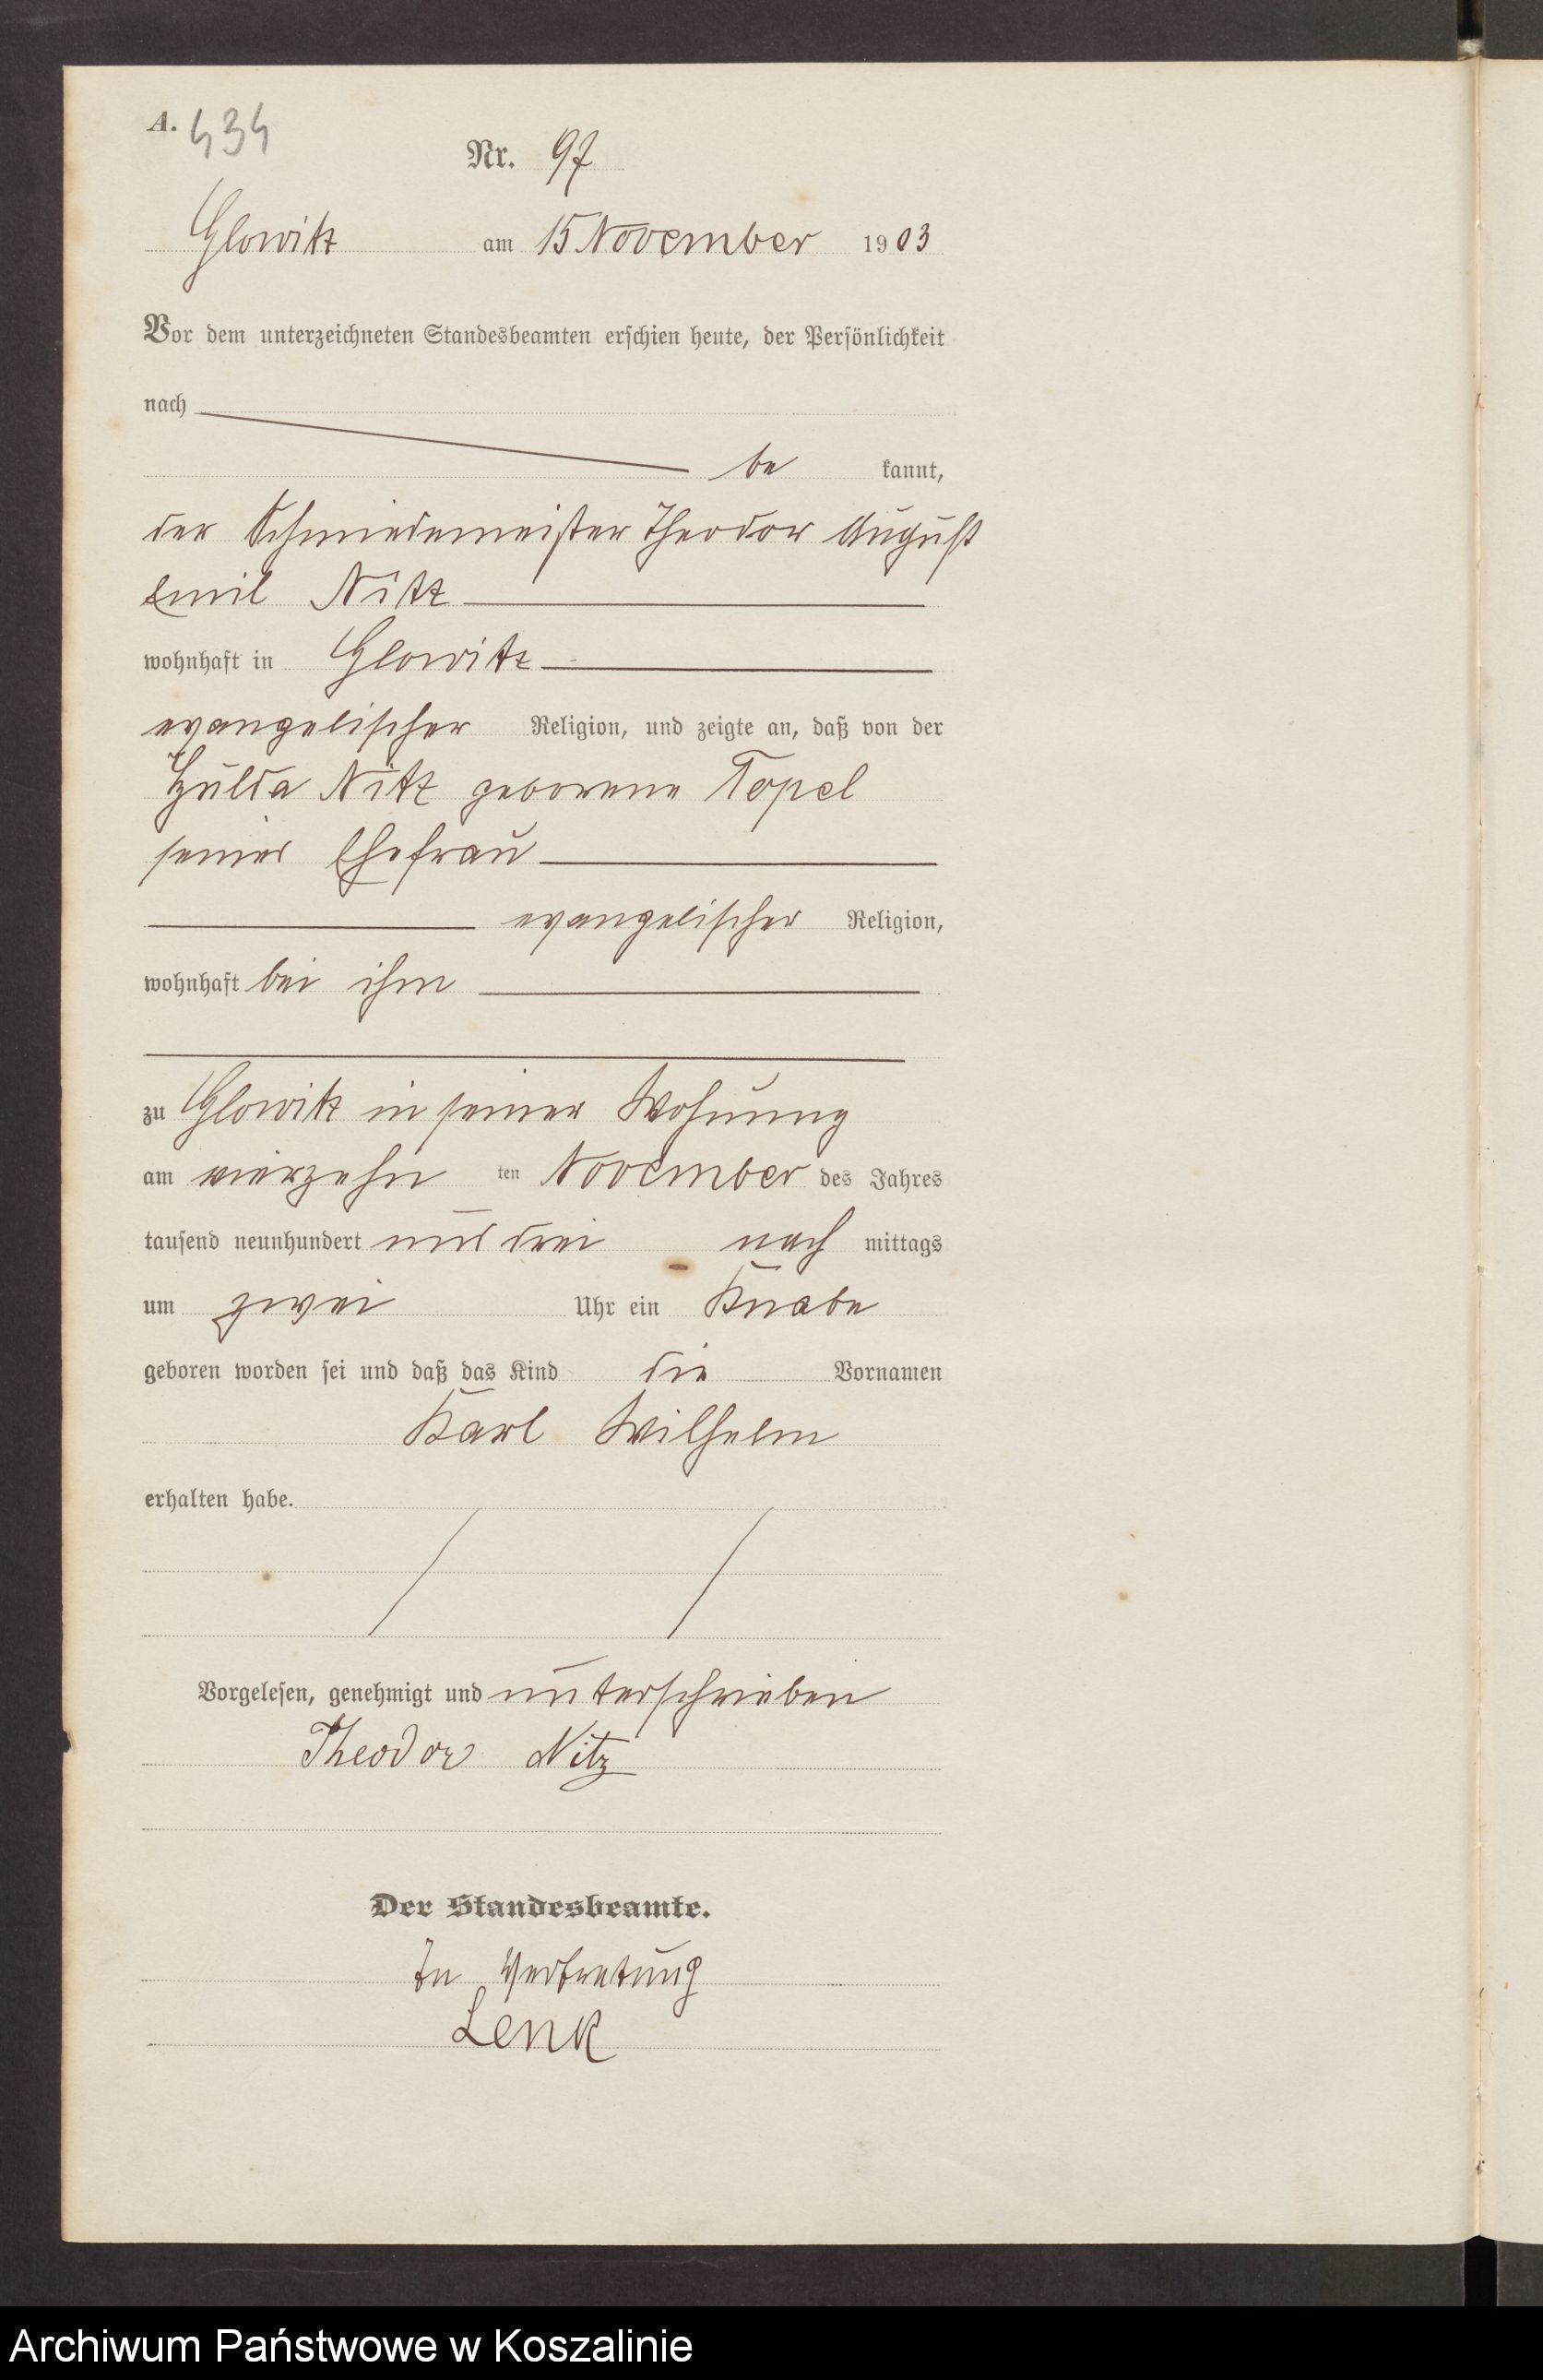 A. 434
Nr. 97
Glowitz am 15 November 1903
Vor dem unterzeichneten Standesbeamten erschien heute, der Persönlichkeit
nach
be kannt,
der Schmiedemeister Theodor August
Emil Nitz
wohnhaft in Glowitz
evangelischer Religion, und zeigte an, daß von der
Hulda Nitz geborene Topel
seiner Ehefrau
evangelischer Religion,
wohnhaft bei ihm
zu Glowitz in seiner Wohnung
am vierzehn ten November des Jahres
tausend neunhundert und drei nach mittags
um zwei Uhr ein Knabe
geboren worden sei und daß das Kind die Vornamen
Karl Wilhelm
erhalten habe.
Vorgelesen, genehmigt und unterschrieben
Theodor Nitz
Der Standesbeamte.
In Vertretung
Lenk
Archiwum Państwowe w Koszalinie